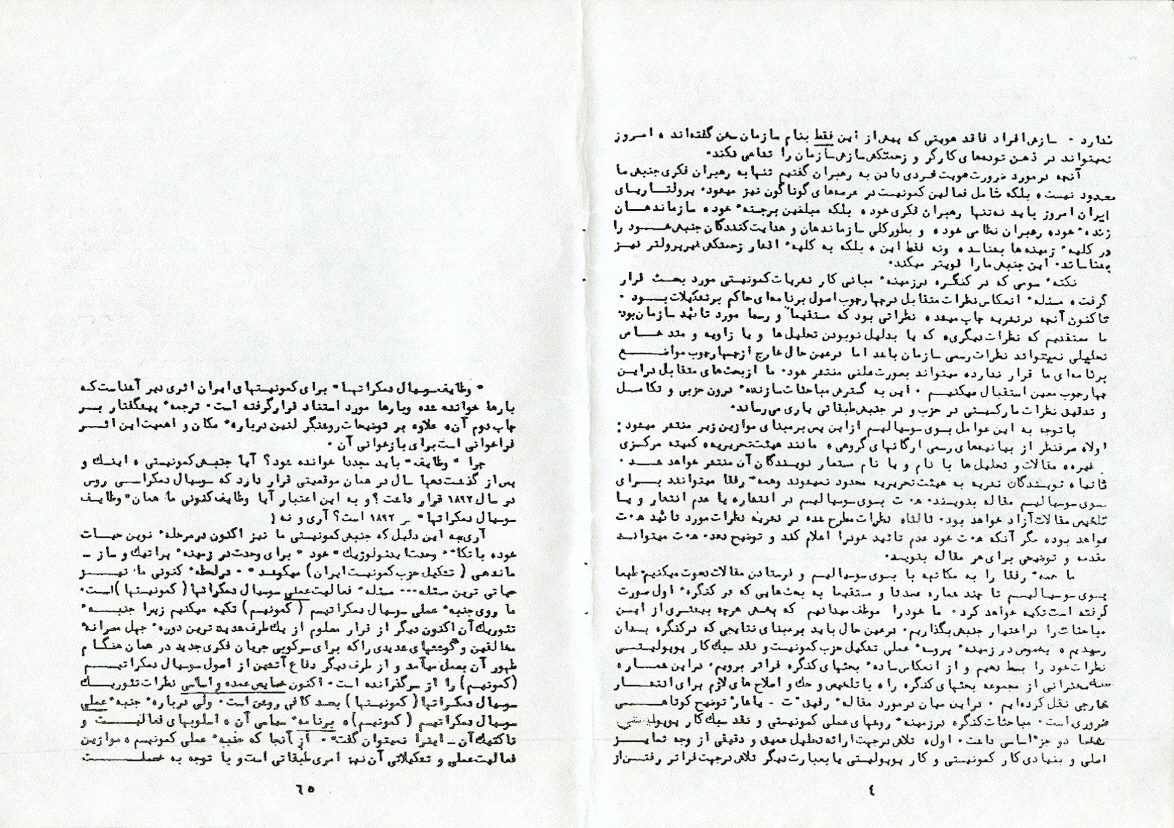 ندارد ۰ سازش افراد فاقد هویتی که پیش از این فقط بنام سازمان سخن گفته‌اند ، امروز
نمیتواند در ذهن توده‌های کارگر و زحمتکش سازش سازمان را تداعی نکند۰
آنچه در مورد ضرورت هویت فردی دادن به رهبران گفتیم تنها به رهبران فکری جنبش ما
محدود نیست ، بلکه شامل فعالین کمونیست در عرصه‌های گوناگون نیز میشود۰ پرولتاریای
ایران امروز باید نه تنها رهبران فکری خود ، بلکه مبلغین برجسته خود ، سازماندهان
زنده خود ، رهبران نظامی خود ، و بطور کلی سازماندهان و هدایت کنندگان جنبش خود را
در کلیه زمینه‌ها بشناسد ، و نه فقط این ، بلکه به کلیه اقشار زحمتکش غیر پرولتر نیز
بشناساند۰ این جنبش ما را قویتر میکند۰
نکته سومی که در کنگره در زمینه مبانی کار نشریات کمونیستی مورد بحث قرار
گرفت ، مسئله انعکاس نظرات متقابل در چهارچوب اصول برنامه‌ای حاکم بر تشکیلات بود ۰
تا کنون آنچه در نشریه چاپ میشده نظراتی بود که مستقیما و رسما مورد تائید سازمان بود۰
ما معتقدیم که نظرات دیگری ، که یا بدلیل نو بودن تحلیل‌ها و یا زاویه و متد خاص
تحلیلی نمیتواند نظرات رسمی سازمان باشد اما در عین حال خارج از چهارچوب مواضع
برنامه‌ای ما قرار ندارد ، میتواند بصورت علنی منتشر شود۰ ما از بحث‌های متقابل در این
چهارچوب معین استقبال میکنیم ۰ این به گسترش مباحثات سازنده درون حزبی و تکامل
و تدقیق نظرات مارکسیستی در حزب و در جنبش طبقاتی یاری می‌رساند۰
با توجه به این عوامل بسوی سوسیالیسم از این پس بر مبنای موازین زیر منتشر میشود :
اولا ، صرفنظر از بیانیه‌های رسمی ارگانهای گروهی ، مانند هیئت تحریریه ، کمیته مرکزی
و غیره ، مقالات و تحلیل‌ها با نام و یا نام مستعار نویسندگان آن منتشر خواهد شد ۰
ثانیا ، نویسندگان نشریه به هیئت تحریریه محدود نمیشوند و همه رفقا میتوانند برای
بسوی سوسیالیسم مقاله بنویسند۰ ه‍ ت بسوی سوسیالیسم در انتشار ، یا عدم انتشار و یا
تلخیص مقالات آزاد خواهد بود۰ ثالثا ، نظرات مطرح شده در نشریه نظرات مورد تائید ه‍ ت
خواهد بود ، مگر آنکه ه‍ ت خود عدم تائید خود را اعلام کند و توضیح دهد۰ ه‍ ت میتواند
مقدمه و توضیحی برای هر مقاله بنویسد۰
ما همه رفقا را به مکاتبه با بسوی سوسیالیسم و فرستادن مقالات دعوت میکنیم۰ طبعا
بسوی سوسیالیسم تا چند شماره عمدتا و مستقیما به بحث‌هایی که در کنگره اول صورت
گرفته است تکیه خواهد کرد۰ ما خود را موظف میدانیم که بخش هرچه بیشتری از این
مباحثات را در اختیار جنبش بگذاریم۰ در عین حال باید بر مبنای نتایجی که در کنگره بدان
رسیدیم ، بخصوص در زمینه پروسه عملی تشکیل حزب کمونیست و نقد سبک کار پوپولیستی
نظرات خود را بسط دهیم و از انعکاس ساده بحثهای کنگره فراتر برویم۰ در این شماره
سه سخنرانی از مجموعه بحثهای کنگره را ، با تلخیص و حک و اصلاح‌های لازم برای انتشار
خارجی نقل کرده‌ایم ۰ در این میان در مورد مقاله رفیق ت ـ یاشار توضیح کوتاهی
ضروری است۰ مباحثات کنگره در زمینه روشهای عملی کمونیستی و نقد سبک کار پوپولیستی
دو جزء اساسی داشت۰ اول ، تلاش در جهت ارائه تحلیل عمیق و دقیقی از وجه تمایز
اصلی و بنیادی کار کمونیستی و کار پوپولیستی یا بعبارت دیگر تلاش در جهت فراتر رفتن از
٤
" وظایف سوسیال دمکراتها " برای کمونیستهای ایران اثری دیر آشناست که
بارها خوانده شده و بارها مورد استناد قرار گرفته است۰ ترجمه پیشگفتار بر
چاپ دوم آن ، علاوه بر توضیحات روشنگر لنین درباره مکان و اهمیت این اثر
فراخوانی است برای بازخوانی آن ۰
چرا " وظایف " باید مجددا خوانده شود؟ آیا جنبش کمونیستی ، اینک و
پس از گذشت دهها سال در همان موقعیتی قرار دارد که سوسیال دمکراسی روس
در سال ۱۸۹۲ قرار داشت؟ و به این اعتبار آیا وظایف کنونی ما همان " وظایف
سوسیال دمکراتها " در ۱۸۹۲ است؟ آری و نه !
آری به این دلیل که جنبش کمونیستی ما نیز اکنون در مرحله نوین حیات
خود ، با تکاء " وحدت ایدئولوژیک " خود " برای وحدت در زمینه پراتیک و ساز ـ
ماندهی ( تشکیل حزب کمونیست ایران ) میکوشد " ۰ در لحظه کنونی ما نیز
حیاتی ترین مسئله ۰۰۰ مسئله فعالیت عملی سوسیال دمکراتها ( کمونیستها ) است۰
ما روی جنبه عملی سوسیال دمکراتیسم ( کمونیسم ) تکیه میکنیم زیرا جنبه
تئوریک آن اکنون دیگر از قرار معلوم از یک طرف شدید ترین دوره جهل مصرانه
مخالفین و کوششهای شدیدی را که برای سرکوبی جریان فکری جدید در همان هنگام
ظهور آن بعمل میآمد و از طرف دیگر دفاع آتشین از اصول سوسیال دمکراتیسم
(کمونیسم) را از سر گذرانده است۰ اکنون خصایص عمده و اساسی نظرات تئوریک
سوسیال دمکراتها ( کمونیستها ) بحد کافی روشن است۰ ولی درباره جنبه عملی
سوسیال دمکراتیسم ( کمونیسم ) ، برنامه سیاسی آن ، اسلوبهای فعالیت و
تاکتیک آن ـ اینرا نمیتوان گفت " ۰ از آنجا که جنبه عملی کمونیسم ، موازین
فعالیت عملی و تشکیلاتی آن نیز امری طبقاتی است و با توجه به خصلت
٦٥